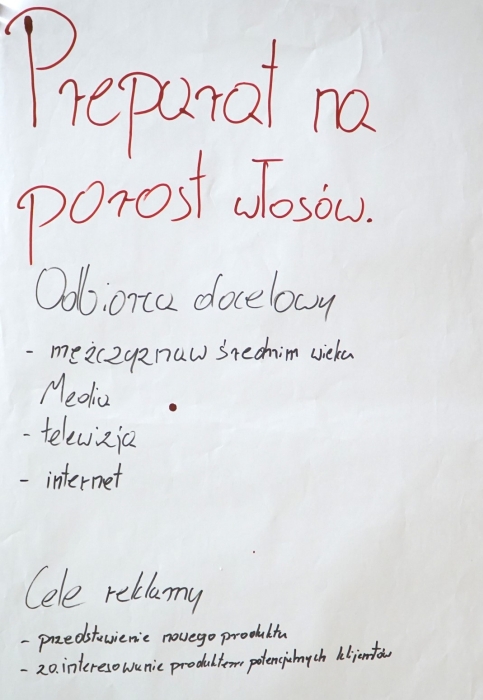 Preparat na
porost włosów.
Odbiorca docelowy
- mężczyzna w średnim wieku
Media
- telewizja
- internet
Cele reklamy
- przedstawienie nowego produktu
- zainteresowanie produktem potencjalnych klijentów